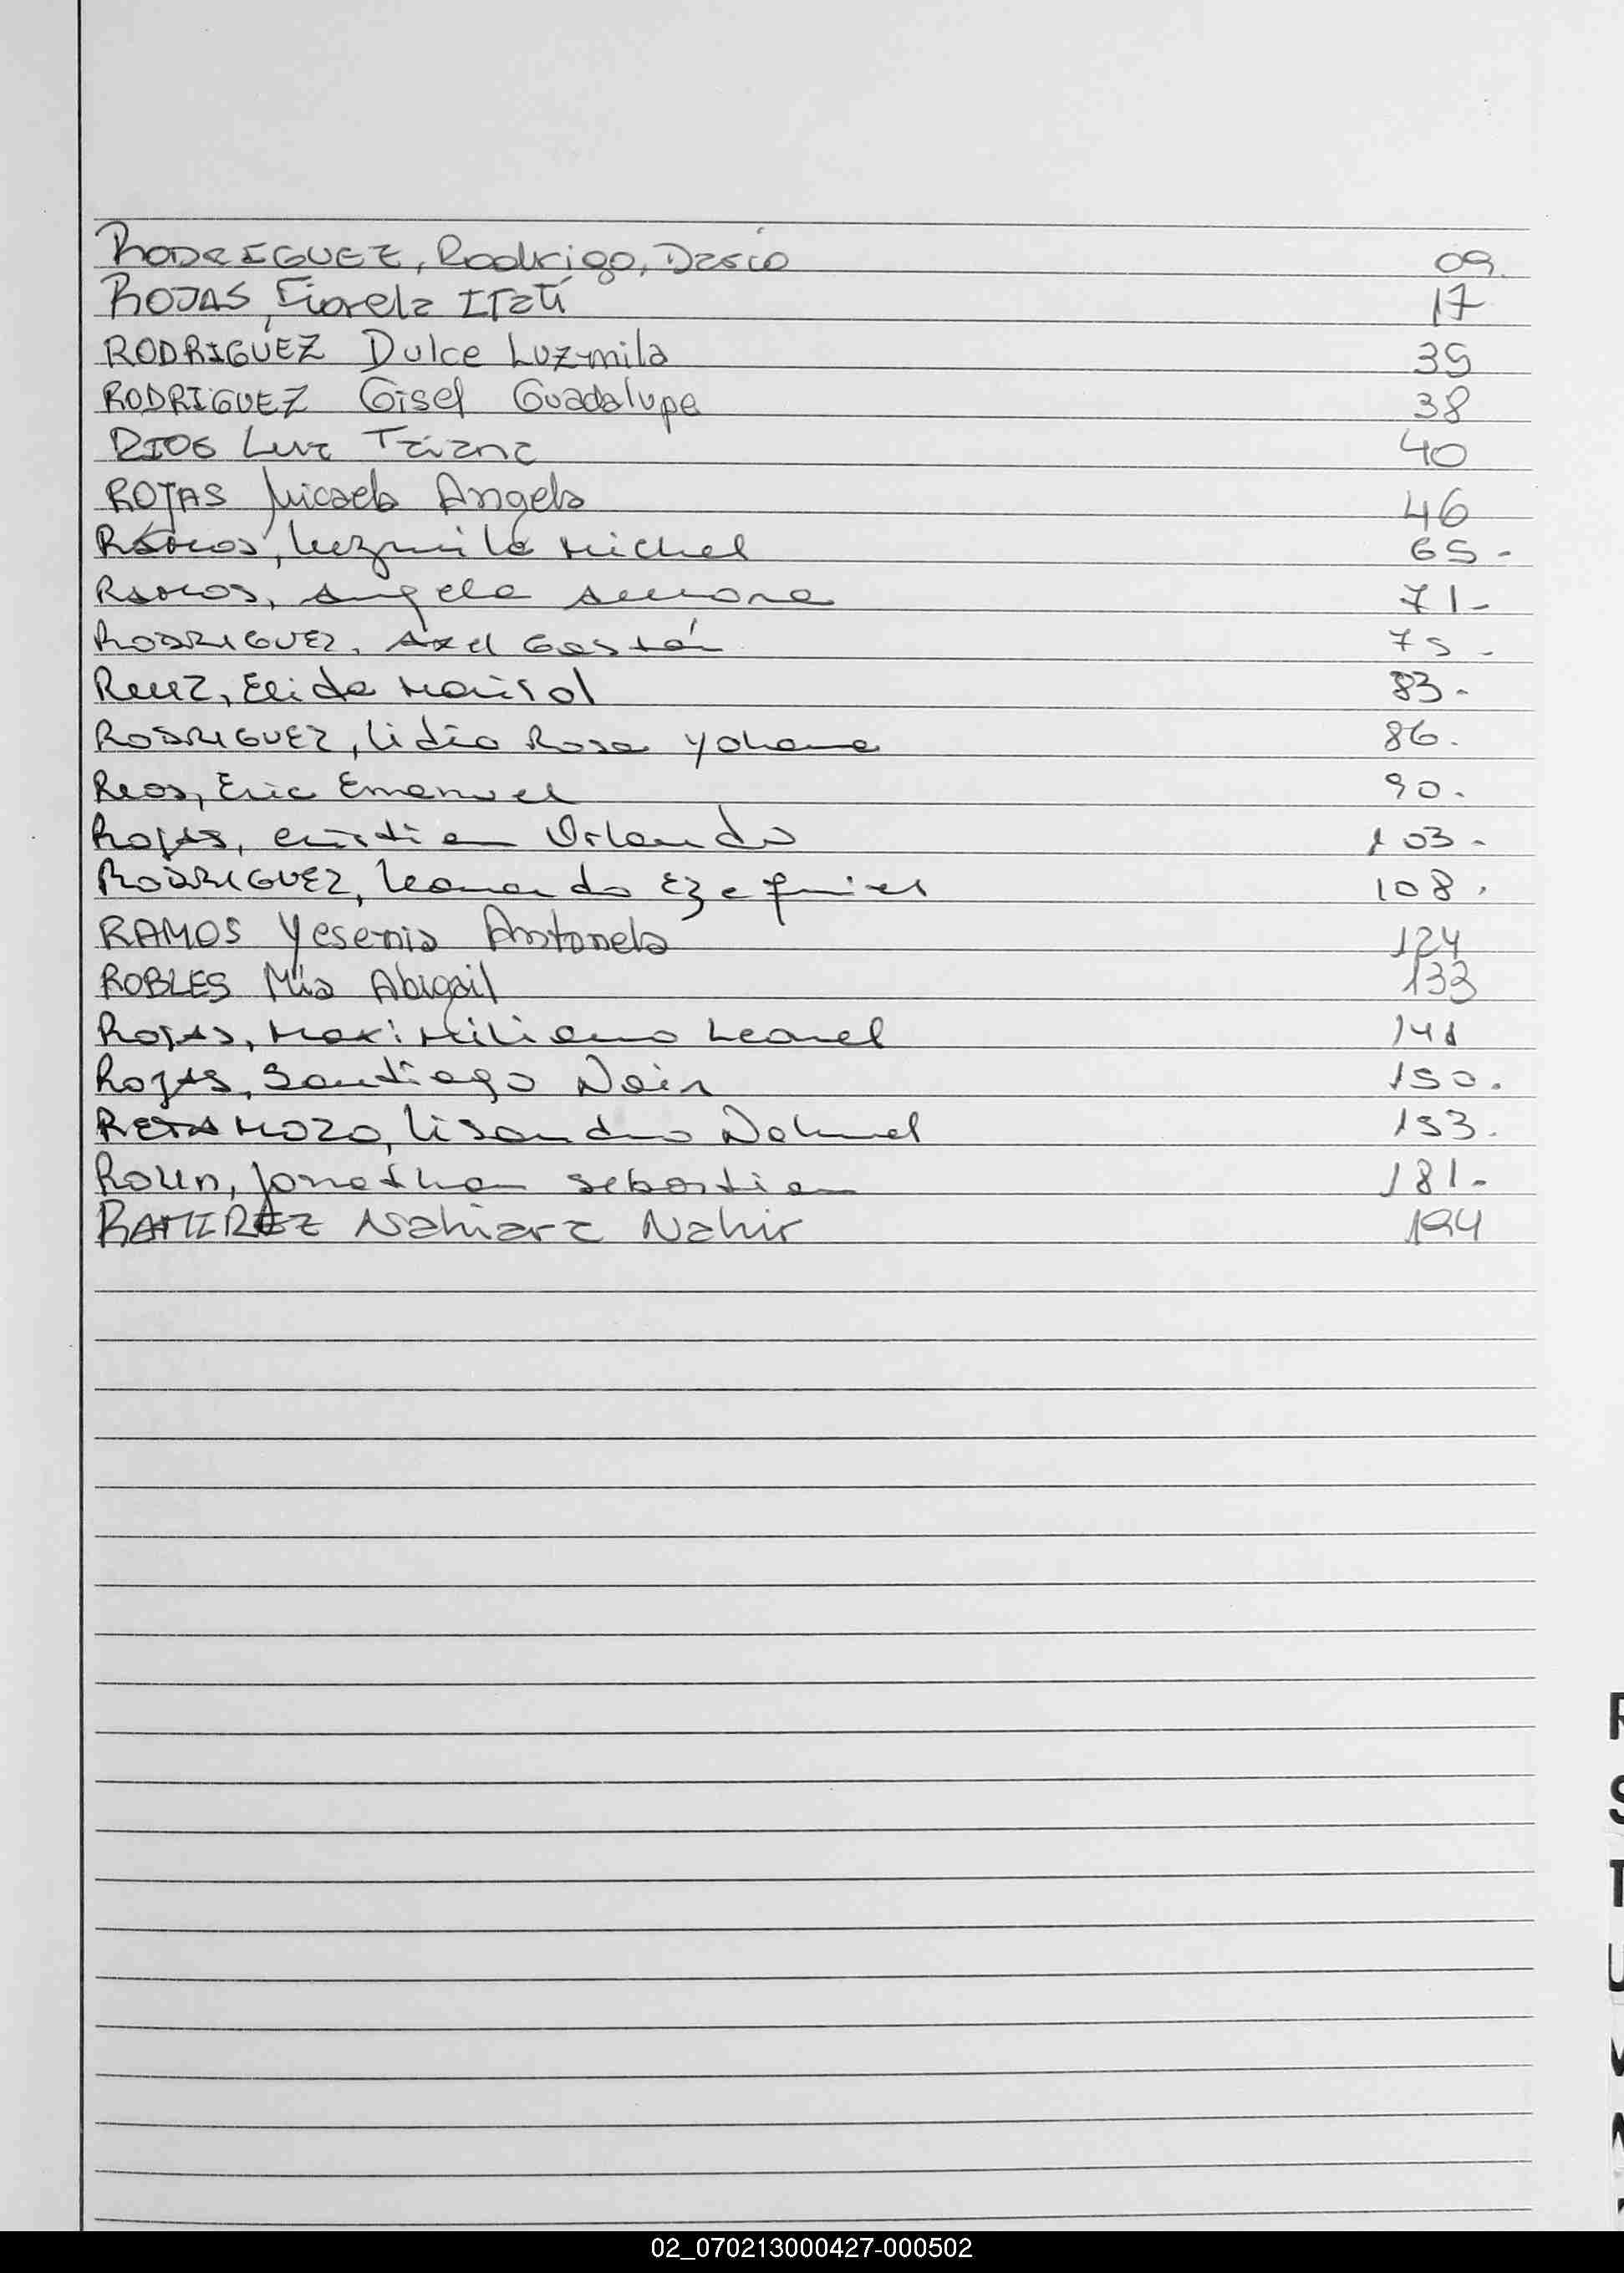 RODRIGUEZ, Rodrigo, Darío 09.
ROJAS, Fiorela ITatí 17
RODRIGUEZ Dulce Luzmila 39
RODRIGUEZ Gisel Guadalupe 38
RIOS Luz Taiana 40
ROJAS Micaela Angela 46
RAMOS, Luzmila Michel 65.-
RAMOS, Angela Aurora 71-
RODRIGUEZ, Axel Gastón 75-
RUIZ, Elida Marisol 83.
RODRIGUEZ, Lidia Rosa Yohana 86.
RIOS, Eric Emanuel 90.
ROJAS, Cristian Orlando 103.
RODRIGUEZ, Leonardo Ezequiel 108.
RAMOS Yesenia Antonela 124
ROBLES Mía Abigail 133
ROJAS, Maximiliano Leonel 141
ROJAS, Santiago Nair 150.
RETAMOZO, Lisandro Nahuel 153.
Jonathan Sebastian 181.
RAMIREZ Nahiara Nahir 194
R
S
T
U
02_070213000427-000502